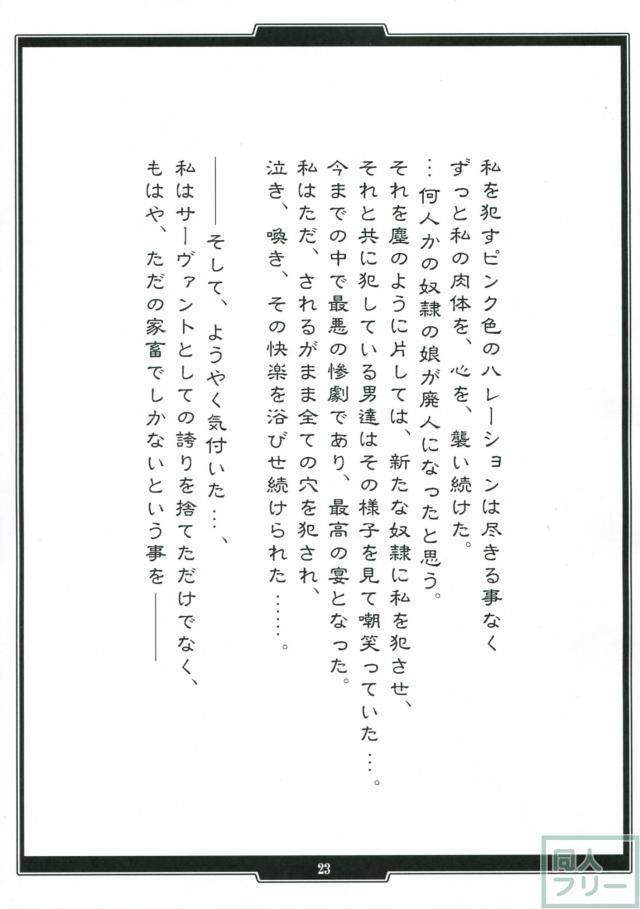 私を犯すピンク色のハレーションは尽きる事なく
ずっと私の肉体を、心を、襲い続けた。
…何人かの奴隷の娘が廃人になったと思う。
それを塵のように片しては、新たな奴隷に私を犯させ、
それと共に犯している男達はその様子を見て嘲笑っていた…。
今までの中で最悪の惨劇であり、最高の宴となった。
私はただ、されるがまま全ての穴を犯され、
泣き、喚き、その快楽を浴びせ続けられた……。
――そして、ようやく気付いた…、
私はサーヴァントとしての誇りを捨てただけでなく、
もはや、ただの家畜でしかないという事を――
23
同人
フリー